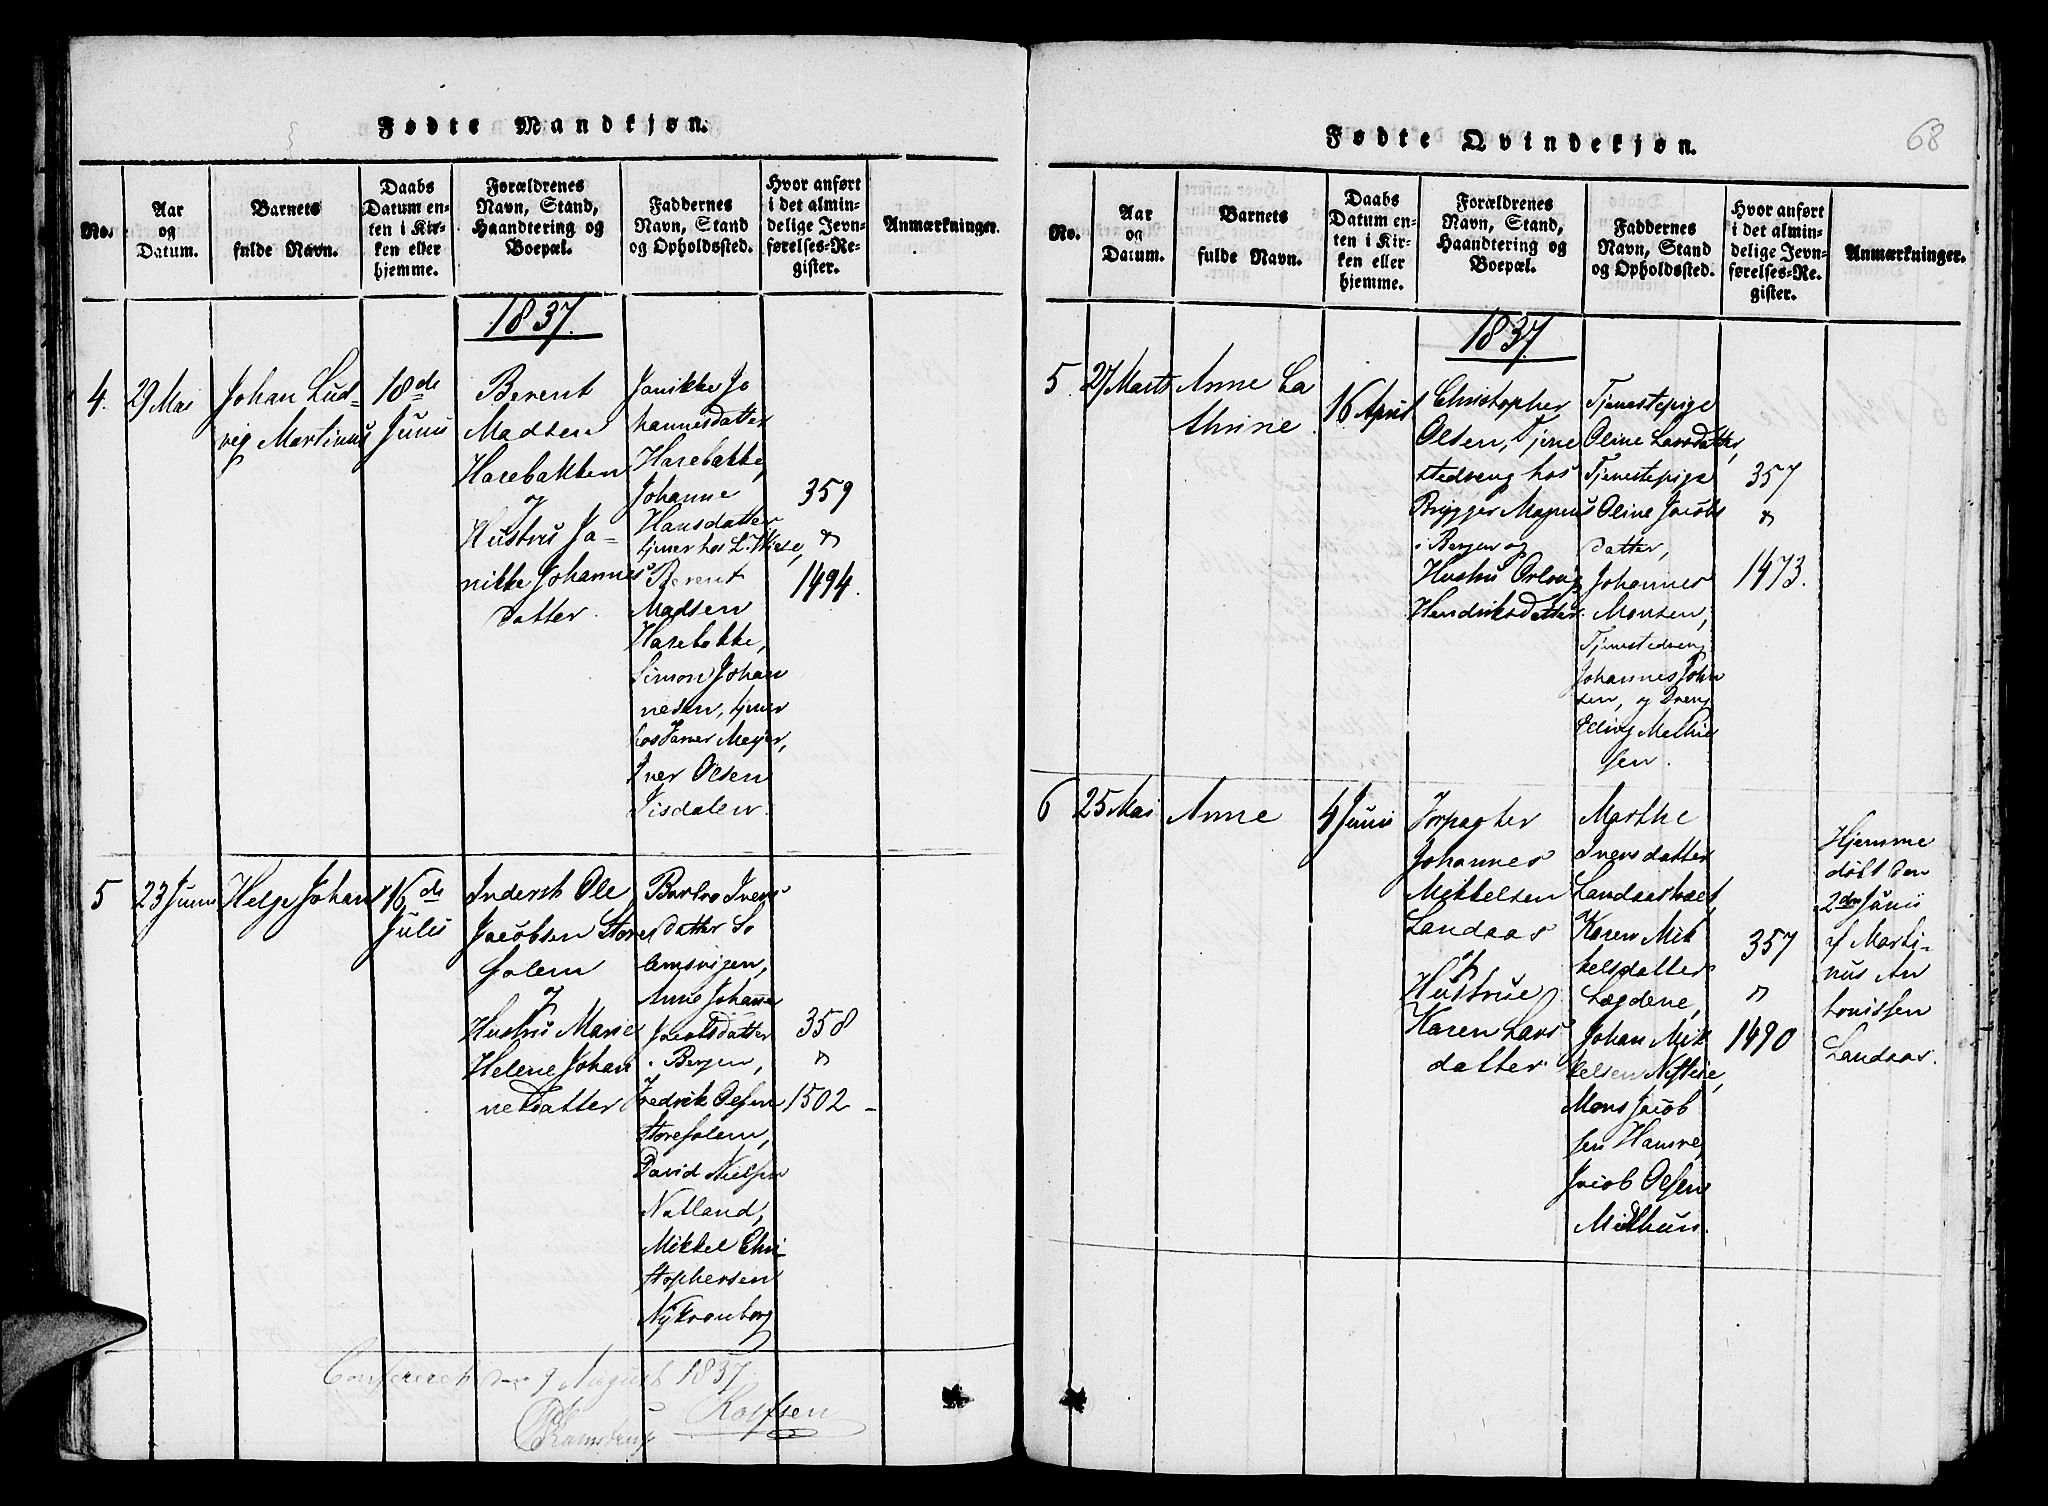 Fødte Mandkjøn.
No.
Aar
og
Datum.
Barnets
fulde Navn.
Daabs
Datum en-
ten i Kir-
ken eller
hjemme.
Forældrenes
Navn, Stand,
Haandtering og
Boepæl.
Faddernes
Navn, Stand
og Opholdssted.
Hvor anført
i det almin-
delige Jevn-
førelses-Re-
gister.
Anmærkninger.
1837.
4.
29 Mai
Johan Lud-
vig Martinus
18de
Junii
Berent
Madsen
Harebakken
og
Hustru Ja-
nikke Johannes
datter.
Janikke Jo
hannesdatter
Harebakke,
Johanne
Hansdatter
tjener hos L. Wiese,
Berent
Madsen
Harebakke,
Simon Johan
nesen, tjener
hos Janer Meyer,
Iver Olsen
Tisdalen.
359
&
1494.
5
23 Junii
Helge Johan
16de
Julii
Inderst Ole
Jacobsen Store
Solem
og
Hustru Marie
Helene Johan
nesdatter
Barbro Ivers
datter So
lemsvigen,
Anne Johanne
Jacobsdatter
i Bergen,
Fredrik Olsen
Storesolem,
David Nielsen
Natland,
Mikkel Chri-
stophersen
Nykronborg
358
&
1502
Confereret den 9 August 1837
Kamstrup
Rolfsen
Fødte Qvindekjøn.
68
No.
Aar
og
Datum.
Barnets
fulde Navn.
Daabs
Datum en-
ten i Kir-
ken eller
hjemme.
Forældrenes
Navn, Stand,
Haandtering og
Boepæl.
Faddernes
Navn, Stand
og Opholdssted.
Hvor anført
i det almin-
delige Jevn-
førelses-Re-
gister.
Anmærkninger.
1837.
5
27 Marts
Anne Ca
thrine
16 April
Christopher
Olsen, Tjene
stedreng hos
Brygger Magnus
i Bergen og
Hustru
Hendriksdatter
Tjenestepige
Oline Larsdatter,
Tjenestepige
Oline Jacobs
datter,
Johannes
Monsen,
Tjenestedreng
Johannes John
sen, og Dreng
Elling Mathie
sen.
357
&
1473.
6
25 Mai
Anne
4 Junii
Forpagter
Johannes
Mikkelsen
Landaas
&
Hustrue
Karen Lars
datter
Marthe
Iversdatter
Landaastræet,
Karen Mik
kelsdatter
Lægdene,
Johan Mik
kelsen Nestene,
Mons Jacob
sen Hamre,
Jacob Olsen
Midthun.
357
&
1490
Hjemme
døbt den
2den Junii
af Marti-
nus An
tonissen
Landaas.